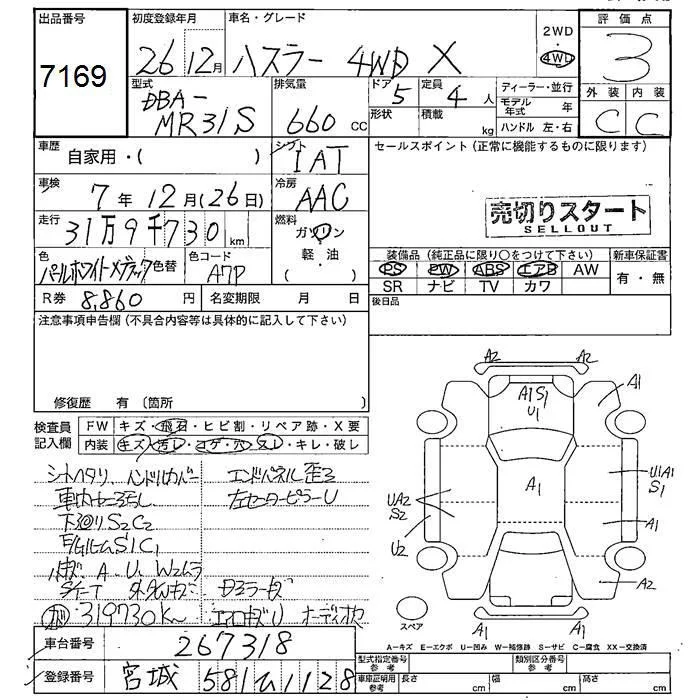 出品番号
7169
初度登録年月
26 12月
車名・グレード
ハスラー 4WD X
2WD
4WD
評価点
3
外装 内装
C C
型式
DBA-
MR31S
排気量
660 cc
ドア
5
形状
定員
4 人
積載
kg
ディーラー・並行
モデル年式 年
ハンドル 左・右
車歴
自家用・( )
シフト
IAT
セールスポイント(正常に機能するものに限ります)
車検
7年12月(26日)
冷房
AAC
売切りスタート
SELLOUT
走行
31万9千730km
燃料
ガソリン
軽・油
( )
色
パールホワイトメ ブラック
色替
色コード
A7P
装備品(純正品に限り○をつけて下さい)
PS PW ABS エアB AW
SR ナビ TV カワ
新車保証書
有・無
R券 8,860 円
名変期限 月 日
後日品
注意事項申告欄(不具合内容等は具体的に記入して下さい)
修復歴 有〔箇所 〕
検査員記入欄
FW キズ・飛石・ヒビ割・リペア跡・X要
内装 キズ・汚レ・コゲ・穴・スレ・キレ・破レ
シートヘタリ ハンドルカバー エンドパネル歪ミ
車内セニヨゴレ 左センターピラーU
下廻りS2C2
S1C1
A・U W2ムラ
319730K
エアロキズU オーディオ
A2 A2
A1S1
U1
A1
A1
U1A1
S1
UA2
S2
U2
A1
A2
A1 A1
スペア
A-キズ E-エクボ U-凹み W-補修跡 S-サビ C-腐食 XX-交換済
車台番号
267318
登録番号
宮城 581 ひ 1128
型式指定番号
参考
類別区分番号
参考
車庫証明用
参考
長さ cm
幅 cm
高さ cm